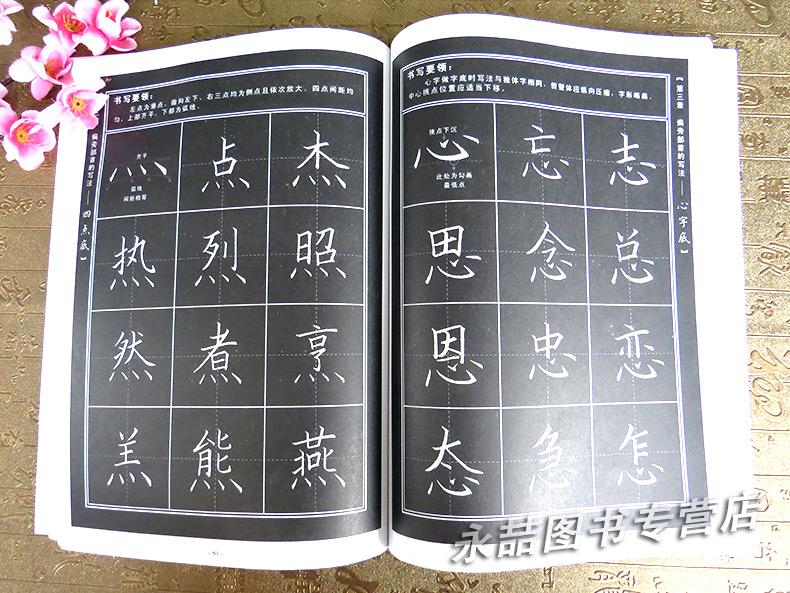 书写要领：
左点为垂点，指向左下，右三点均为侧点且依次放大，四点间距均
匀，上部齐平，下部为弧线。
【偏旁部首的写法——四点底】
灬 点 杰
齐平
弧线
间距相等
热 烈 照
然 煮 烹
羔 熊 燕
80
书写要领：
心字做字底时写法与独体字相同，但整体应纵向压缩，字形略扁，
中心挑点位置应适当下移。
【第三章 偏旁部首的写法——心字底】
心 忘 志
挑点下沉
此处为勾画
最低点
思 念 总
恩 忠 恋
态 急 怎
永喆图书专营店